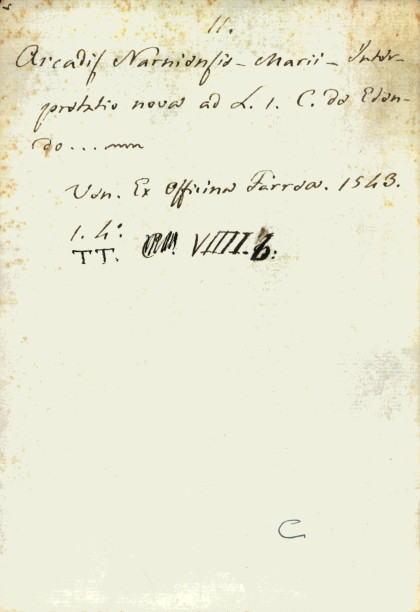 11.
Arcadis Narniensis - Marii - Inter-
pretatio nova ad L. 1. C. de Eden-
do...
Ven. Ex Officina Farrea. 1543.
1. 4:
TT. VIIII. 6:
C